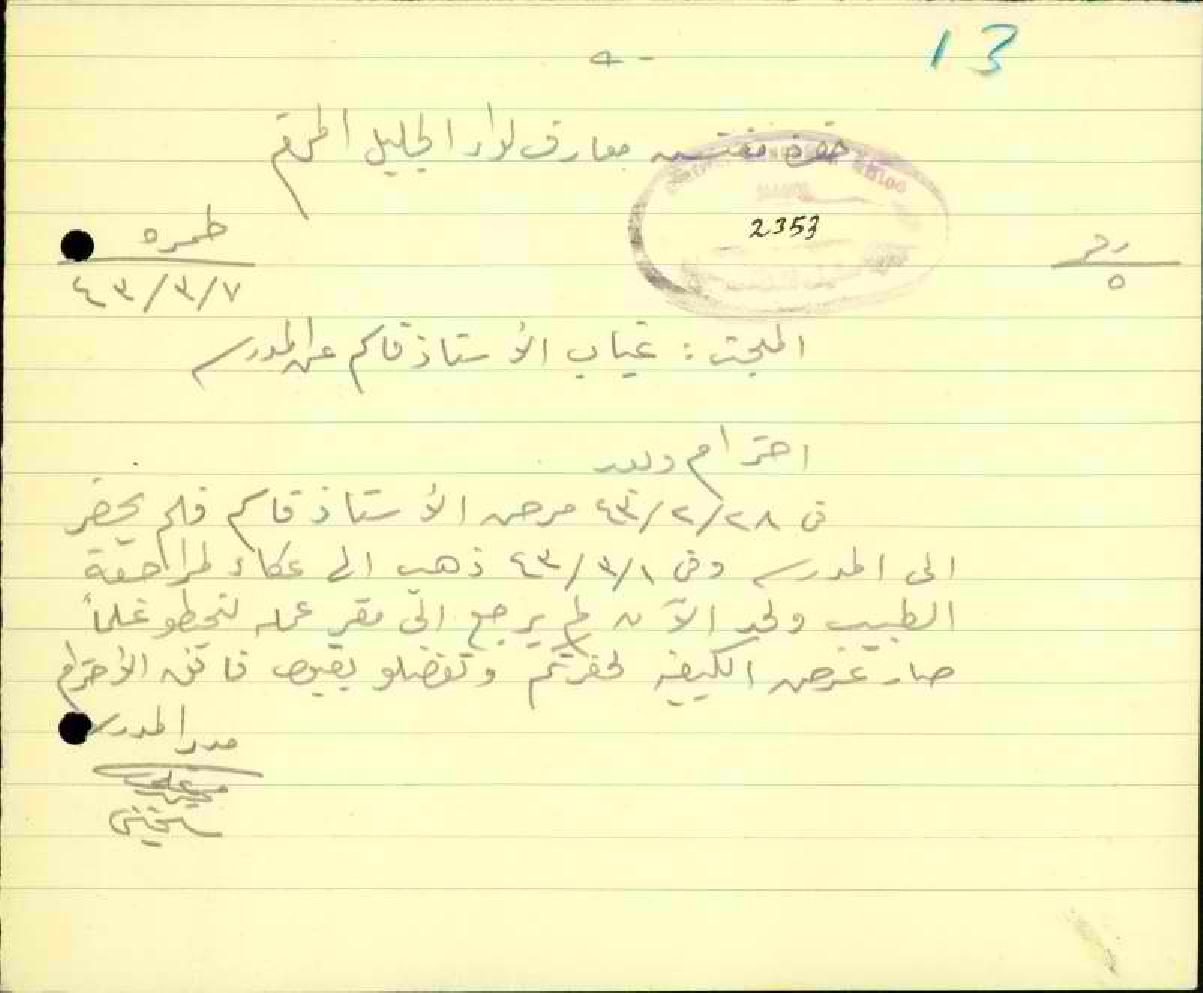 13
حضرة مفتش معارف لواء الجليل المحترم
2353
رقم
٥
طمره
٤٣/٣/٧
المبحث : غياب الأستاذ قاسم عن المدرسه
احترام وبعد
في ٤٣/٢/٢٨ مرض الأستاذ قاسم فلم يحضر
الى المدرسه وفي ٤٣/٣/١ ذهب الى عكاء لمراجعة
الطبيب ولحد الآن لم يرجع الى مقر عمله لتحطو علماً
صار عرض الكيفيه لحضرتكم وتفضلو بقبول فائق الأحترام
مدير المدرسه